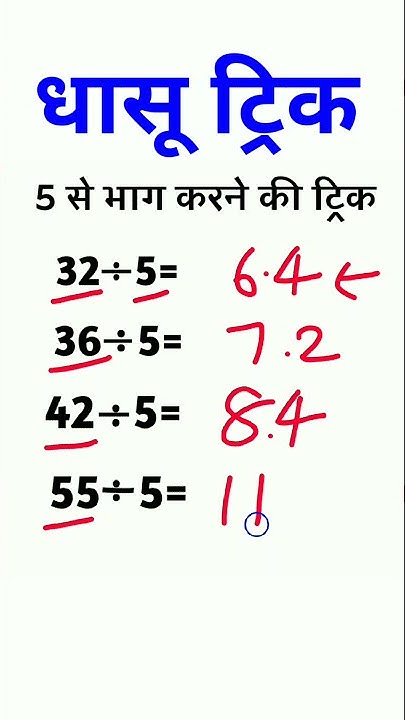 धासू ट्रिक
5 से भाग करने की ट्रिक
32÷5= 6.4 ←
36÷5= 7.2
42÷5= 8.4
55÷5= 11